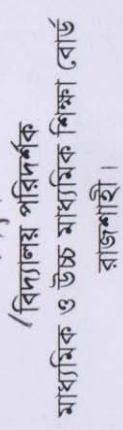 /বিদ্যালয় পরিদর্শক
মাধ্যমিক ও উচ্চ মাধ্যমিক শিক্ষা বোর্ড
রাজশাহী।